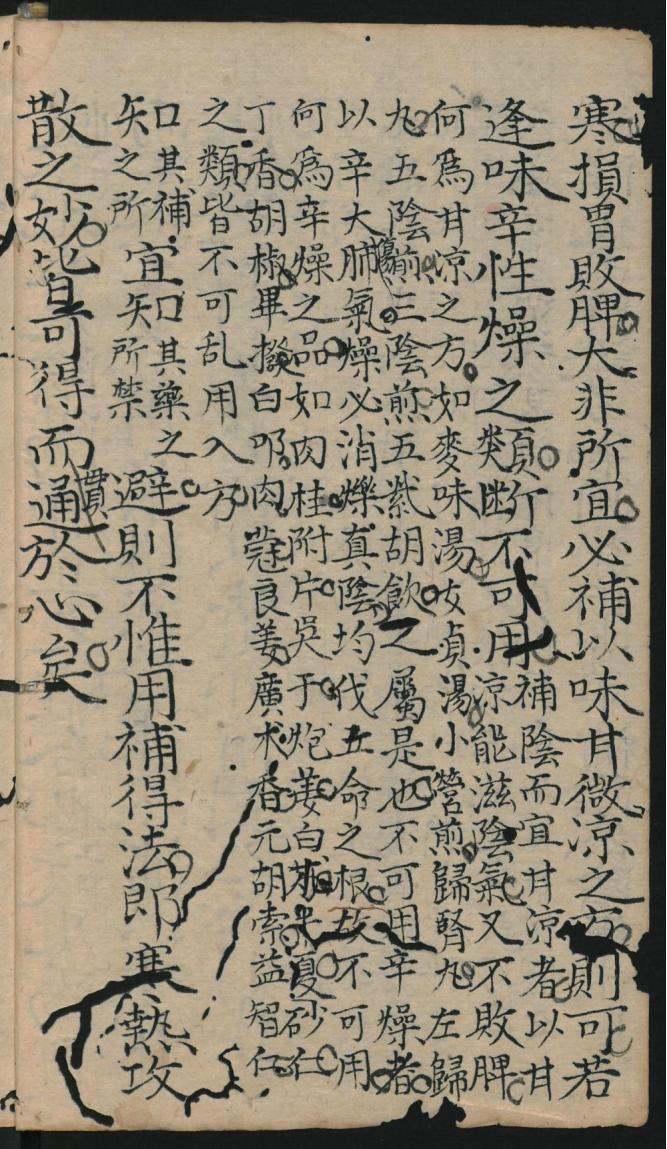 寒損胃敗脾大非所宜必補以味甘微凉之方則可若
逢味辛性燥之類断不可用
補陰而宜甘凉者以甘
凉能滋陰氣又不敗脾
何爲甘凉之方如麥味湯女貞湯小營煎歸腎丸左歸
丸五陰煎三陰煎五紫胡飲之屬是也不可用辛燥者
以辛大傷肺氣燥必消爍真陰均伐五命之根故不可用
何爲辛燥之品如肉桂附片吳于炮姜白夏砂仁
丁香胡椒畢撥白叩肉蔻良姜廣木香元胡索益智仁
之類皆不可乱用入方
口其補
矢之所
宜
口其藥之
矢所禁
避則不惟用補得法郎寒熱攻
散之妙皆可得而通貫於心矣